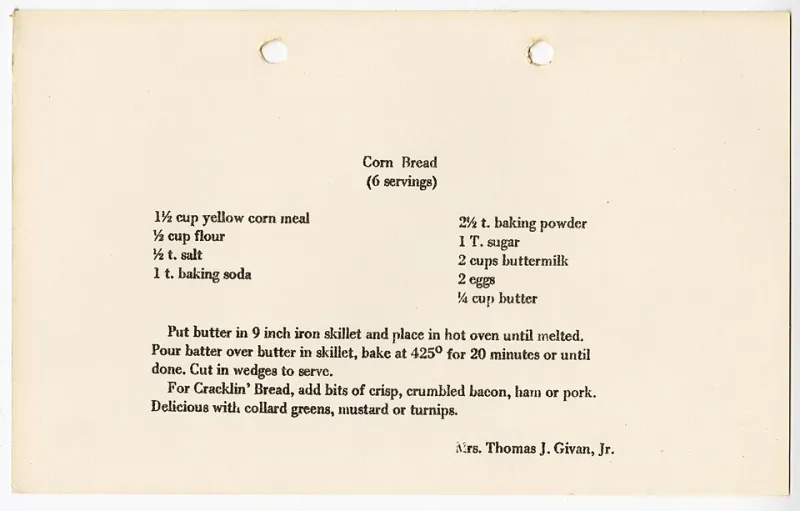 Corn Bread
(6 servings)
1½ cup yellow corn meal
½ cup flour
½ t. salt
1 t. baking soda
2½ t. baking powder
1 T. sugar
2 cups buttermilk
2 eggs
¼ cup butter
Put butter in 9 inch iron skillet and place in hot oven until melted.
Pour batter over butter in skillet, bake at 425° for 20 minutes or until
done. Cut in wedges to serve.
For Cracklin' Bread, add bits of crisp, crumbled bacon, ham or pork.
Delicious with collard greens, mustard or turnips.
Mrs. Thomas J. Givan, Jr.